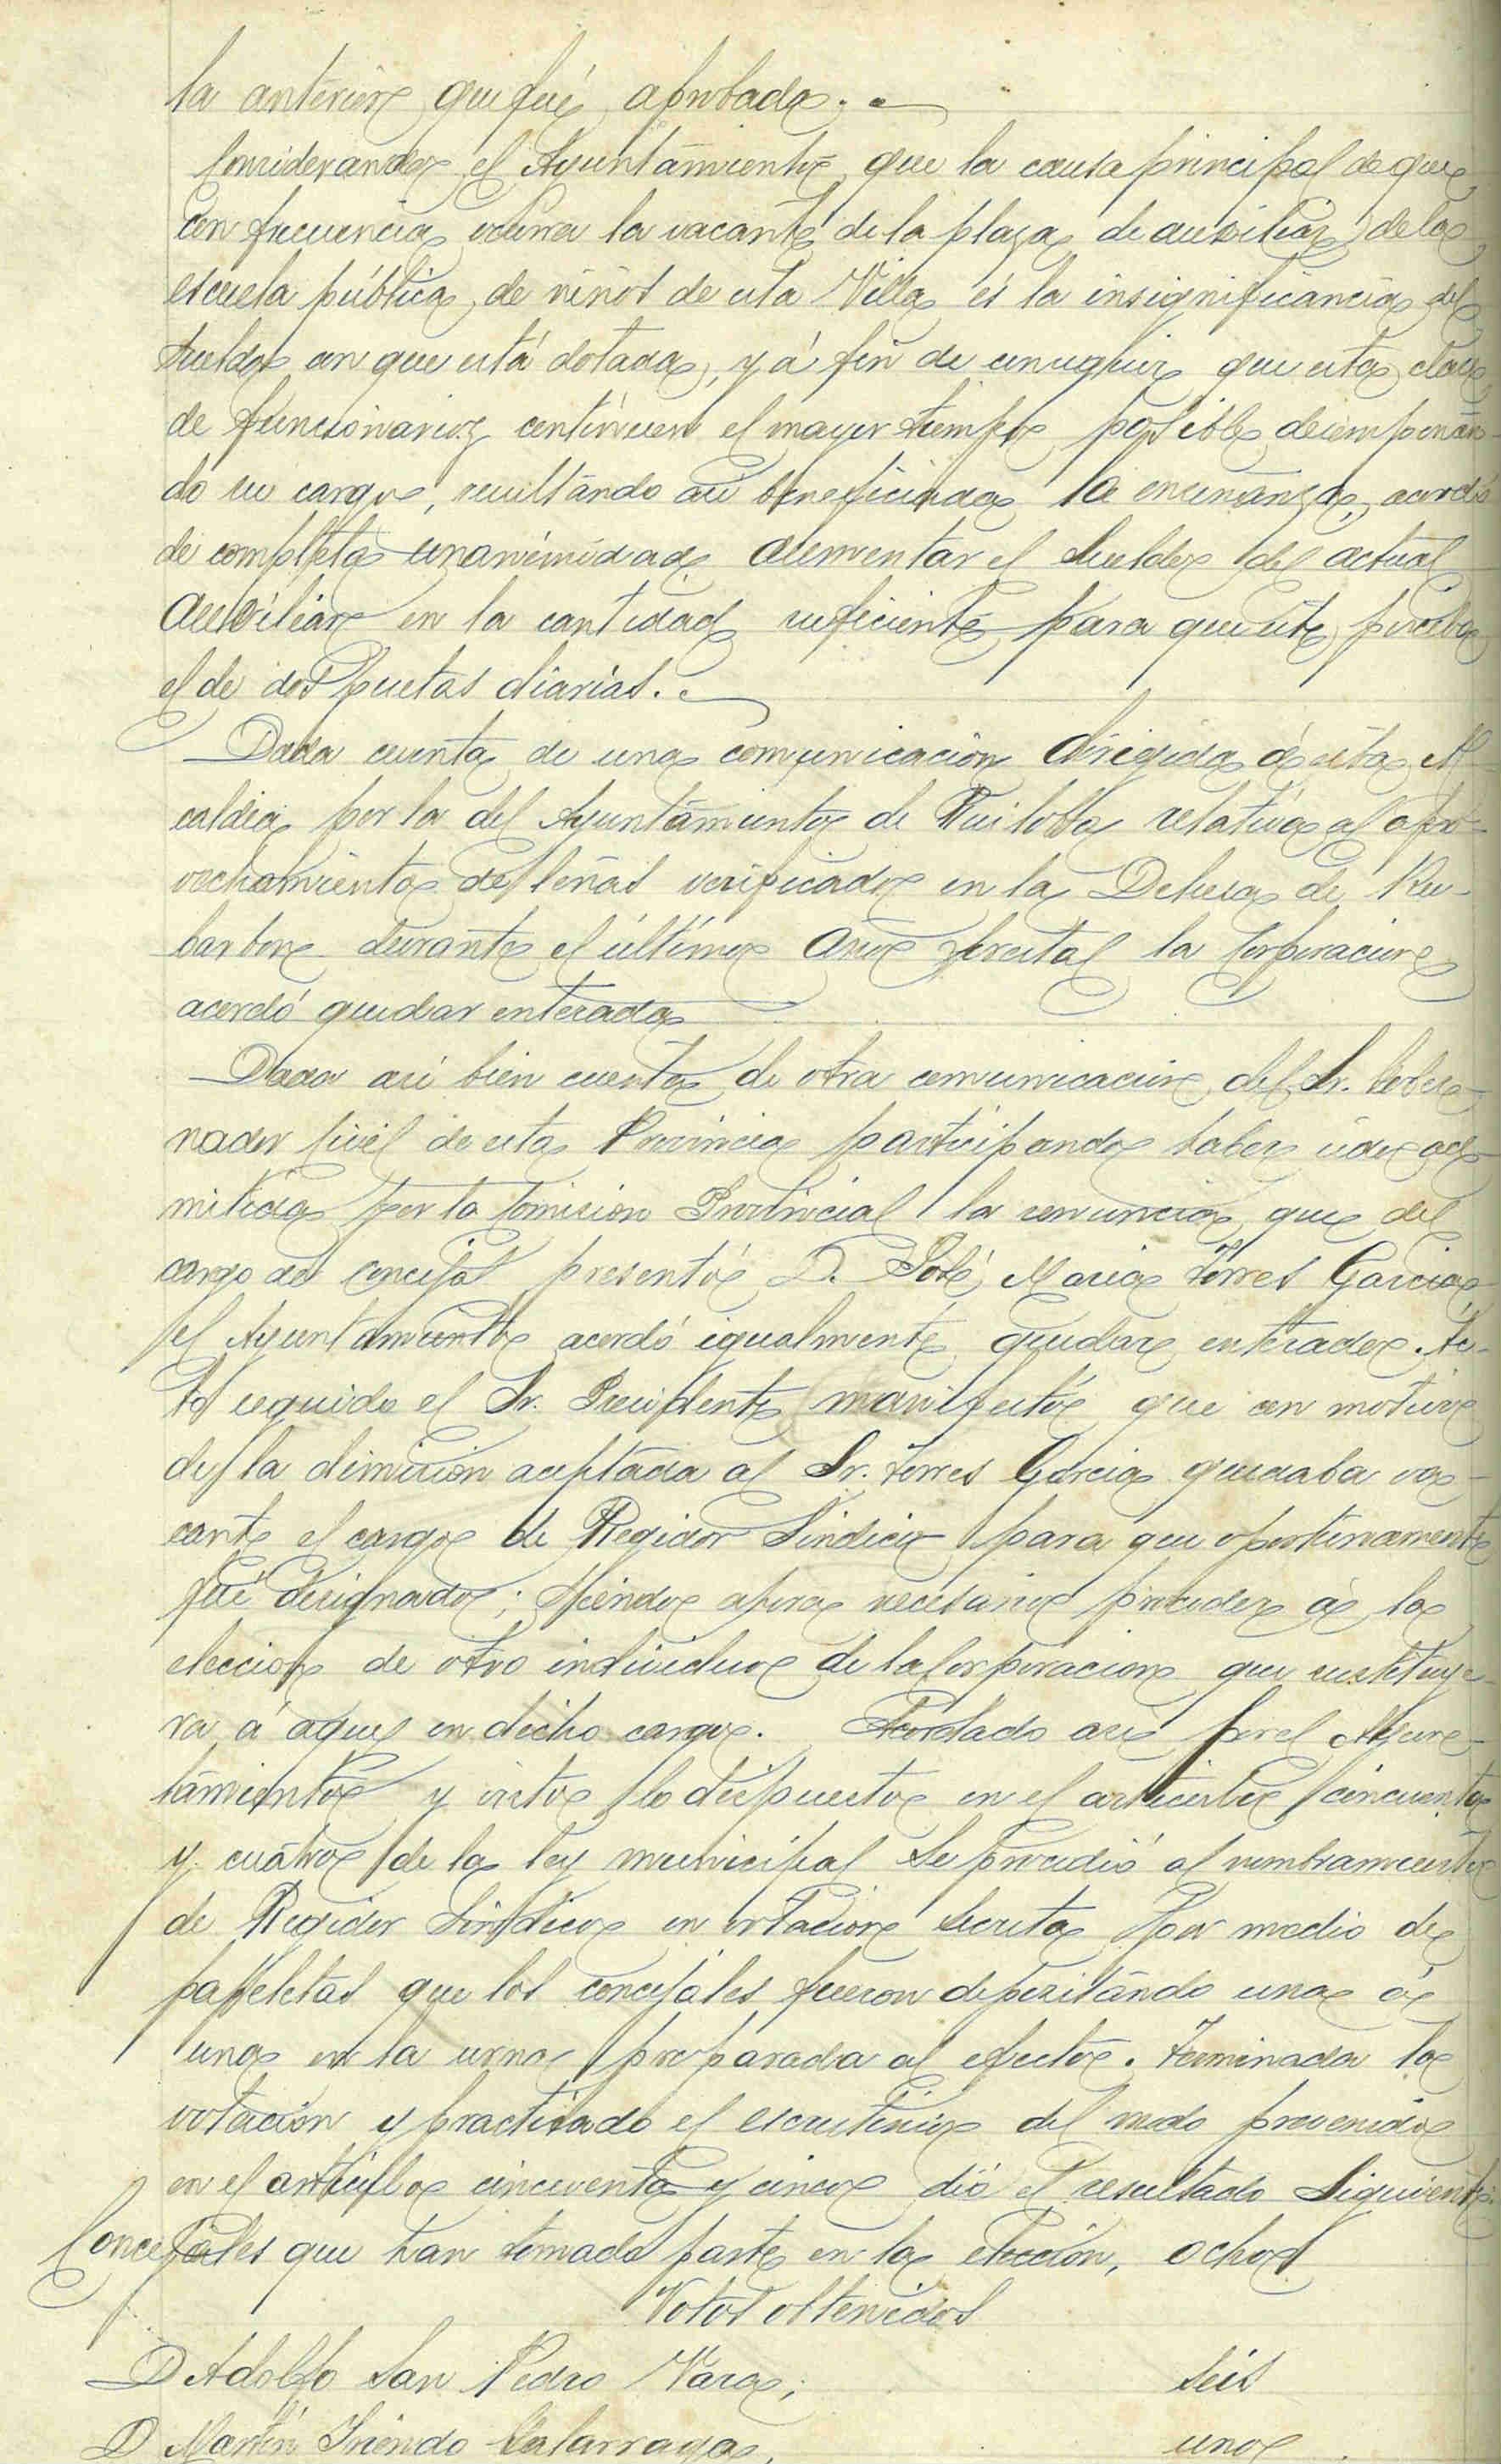 la anterior que fué aprobada.
Considerando el Ayuntamiento que la causa principal de que
con frecuencia ocurra la vacante de la plaza de auxiliar de la
escuela pública de niños de esta Villa es la insignificancia del
sueldo con que está dotada, y á fin de conseguir que esta clase
de funcionarios continúen el mayor tiempo posible desempeñan-
do su cargo, resultando así beneficiada la enseñanza, acordó
de completa unanimidad aumentar el sueldo del actual
Auxiliar en la cantidad suficiente para que éste perciba
el de dos pesetas diarias.
Dada cuenta de una comunicación dirigida á esta Al-
caldia por la del Ayuntamiento de relativa al apro-
vechamiento de leñas verificado en la Dehesa de Ru-
barbon durante el último año forestal la Corporacion
acordó quedar enterada
Dada así bien cuenta de otra comunicacion del Sr. Gober-
nador Civil de esta Provincia participando haber sido ad-
mitida por la Comision Provincial la renuncia que del
cargo de concejal presentó D. José Maria Torres Garcia
el Ayuntamiento acordó igualmente quedar enterado. Ac-
to seguido el Sr. Presidente manifestó que con motivo
de la dimision aceptada al Sr. Torres Garcia quedaba va-
cante el cargo de Regidor Sindico para que oportunamente
fué designado; siendo ahora necesario proceder á la
eleccion de otro individuo de la Corporacion que sustituye-
ra á aquel en dicho cargo. Acordado asi por el Ayun-
tamiento y visto lo dispuesto en el articulo cincuenta
y cuatro de la ley municipal se procedió al nombramiento
de Regidor Sindico en votacion secreta por medio de
papeletas que los concejales fueron depositando una á
una en la urna preparada al efecto. Terminada la
votación y practicado el escrutinio del modo prevenido
en el artículo cincuenta y cinco dió el resultado siguiente.
Concejales que han tomado parte en la elección, ocho
Votos obtenidos
D Adolfo San Pedro Vara; seis
D Martín Iriondo uno